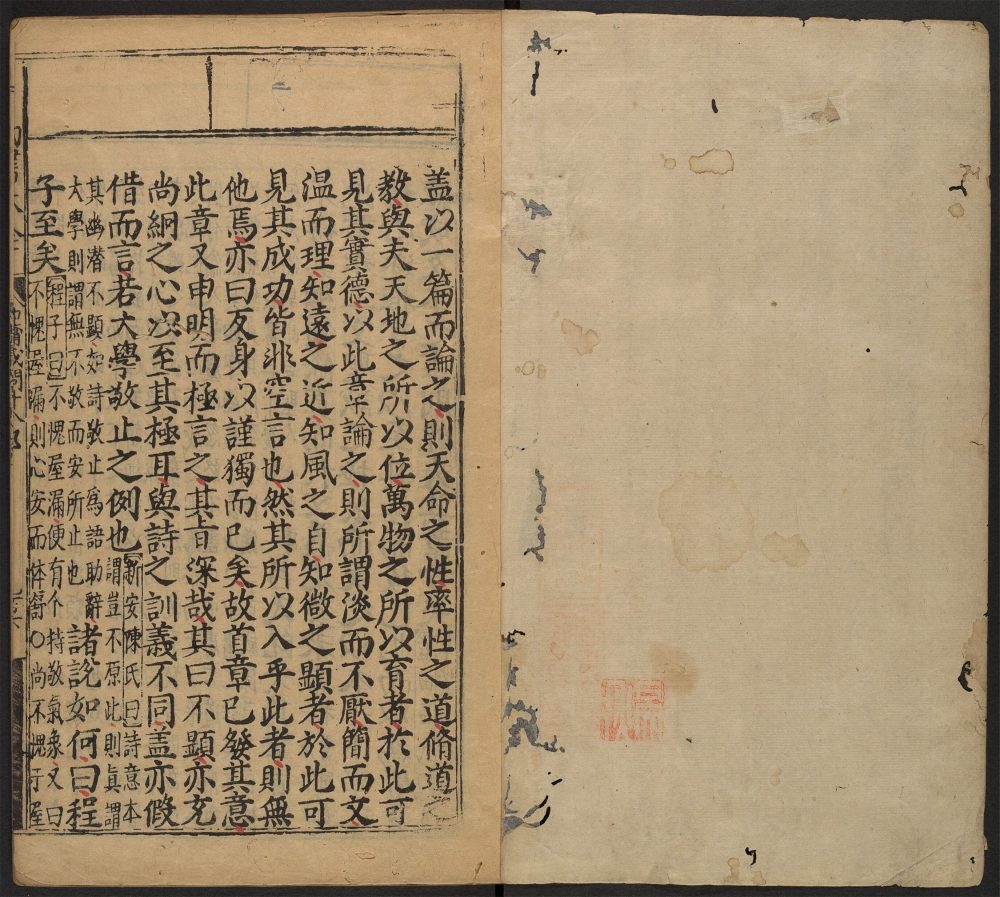 盖以一篇而論之則天命之性率性之道脩道之
教與夫天地之所以位萬物之所以育者於此可
見其實德以此章論之則所謂淡而不厭簡而文
温而理知遠之近知風之自知微之顯者於此可
見其成功皆非空言也然其所以入乎此者則無
他焉亦曰反身以謹獨而已矣故首章已發其意
此章又申明而極言之其旨深哉其曰不顯亦充
尚絅之心以至其極耳與詩之訓義不同盖亦假
借而言若大學敬止之例也
新安陳氏曰詩意本
謂豈不原此則眞謂
其幽潜不顯如詩敬止爲語助辭
大學則謂無不敬而安所止也
諸説如何曰程
子至矣
程子曰不愧屋漏便有个持敬氣象又曰
不愧屋漏則心安而体舒〇尚不愧于屋